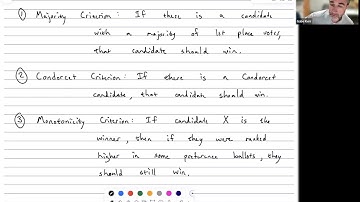 ① Majority Criterion: If there is a candidate
with a majority of 1st place votes,
that candidate should win.
② Condorcet Criterion: If there is a Condorcet
candidate, that candidate should win.
③ Monotonicity Criterion: If candidate X is the
winner, then if they were ranked
higher in some preference ballots, they
should still win.